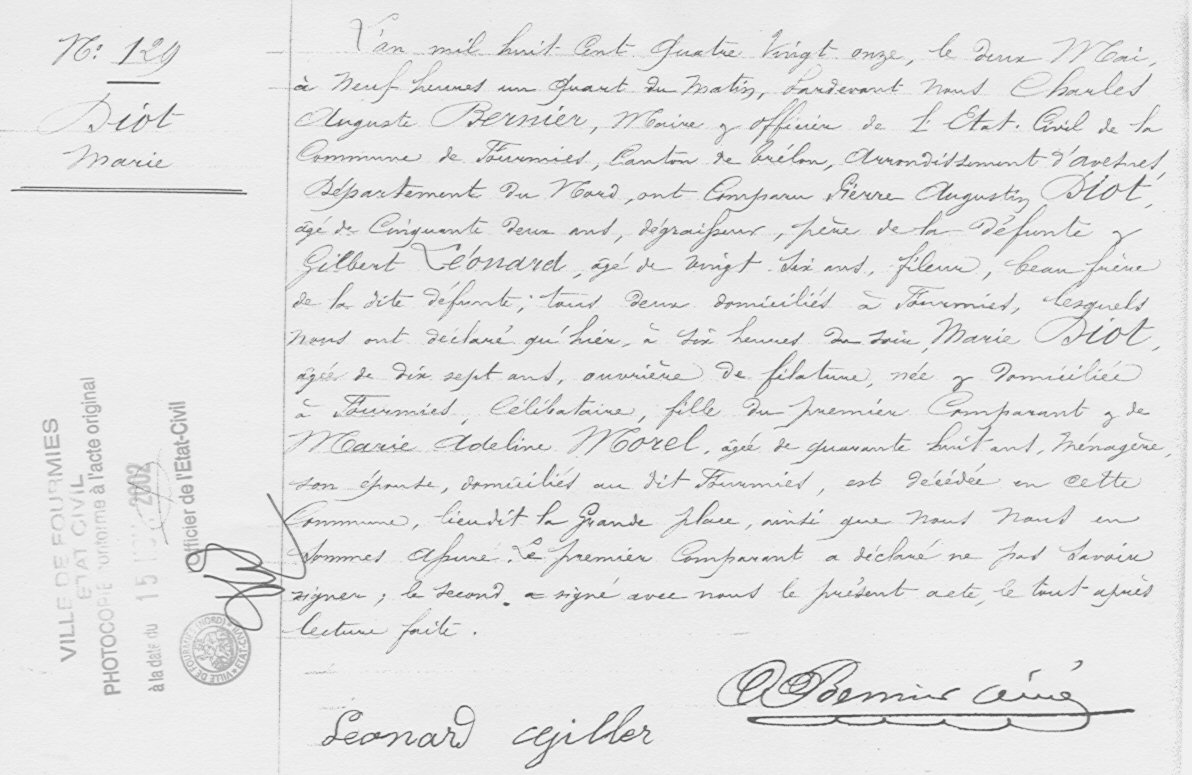 N° 129
Diot
Marie
L'an mil huit Cent Quatre Vingt onze, le deux Mai,
à Neuf heures un Quart du Matin, Pardevant Nous Charles
Auguste Bernier, Maire & Officier de l'Etat-Civil de la
Commune de Fourmies, Canton de Trélon, Arrondissement d'avesnes,
Département du Nord, ont Comparu Pierre Augustin Diot,
âgé de Cinquante deux ans, dégraisseur, père de la Défunte &
Gilbert Léonard, âgé de vingt six ans, fileur, beau frère
de la dite défunte; tous deux domiciliés à Fourmies, lesquels
Nous ont déclaré qu'hier, à six heures du soir, Marie Diot,
âgée de dix sept ans, ouvrière de filature, née & domiciliée
à Fourmies, Célibataire, fille du premier Comparant & de
Marie Adeline Morel, âgée de quarante huit ans, Ménagère,
son épouse, domiciliés au dit Fourmies, est décédée en cette
Commune, lieudit la Grande place, ainsi que Nous Nous en
sommes assuré. Le premier Comparant a déclaré ne pas savoir
signer; le second a signé avec nous le présent acte, le tout après
lecture faite.
Léonard Gilber
A Bernier ainé
VILLE DE FOURMIES
ETAT CIVIL
PHOTOCOPIE conforme à l'acte original
à la date du 15 2002
l'Officier de l'Etat-Civil